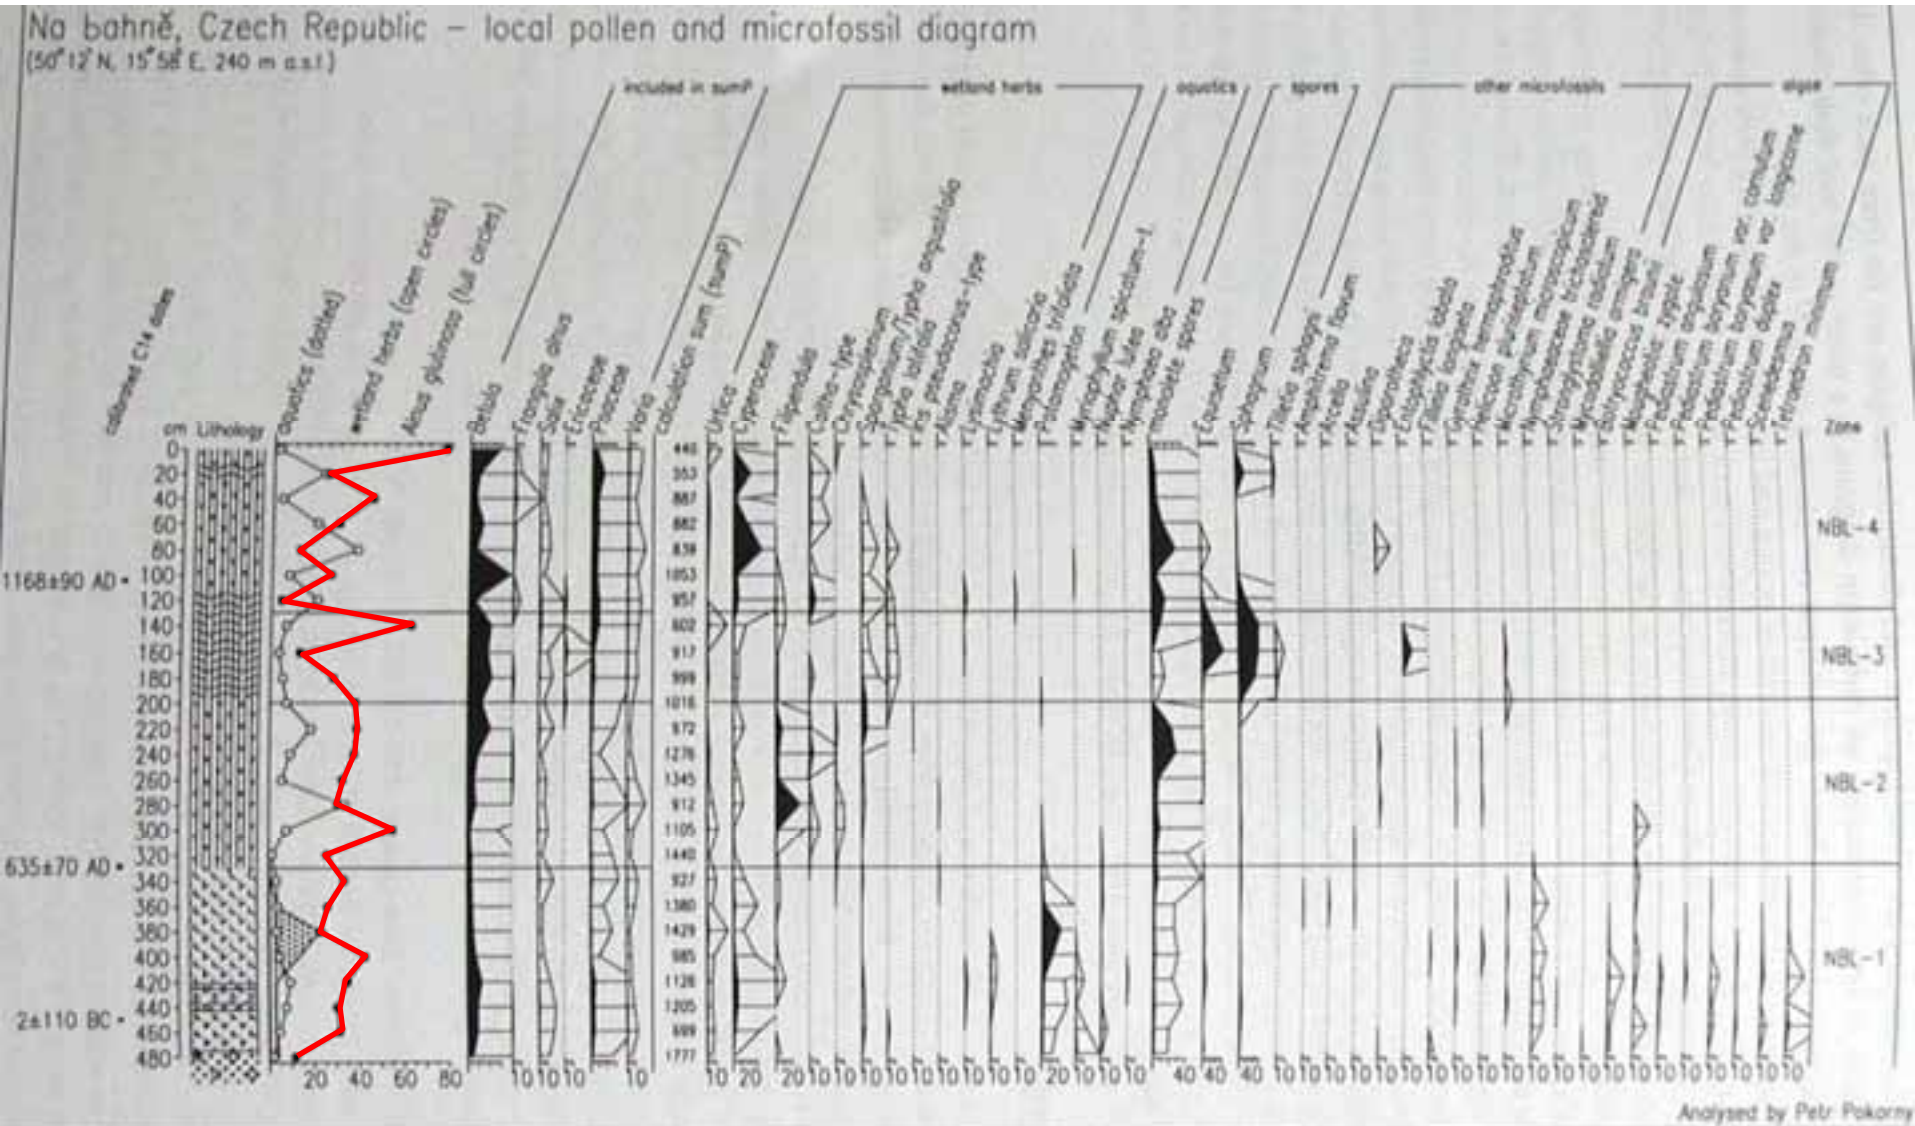 Na bahně, Czech Republic – local pollen and microfossil diagram
(50°12' N, 15°58' E, 240 m a.s.l.)
included in sumP
wetland herbs
aquatics
spores
other microfossils
algae
calibrated C14 dates
cm
Lithology
aquatics (dotted)
wetland herbs (open circles)
Alnus glutinosa (full circles)
Betula
Frangula alnus
Salix
Ericaceae
Poaceae
Varia
calculation sum (sumP)
Urtica
Cyperaceae
Filipendula
Caltha-type
Chrysosplenium
Sparganium/Typha angustifolia
Typha latifolia
Iris pseudacorus-type
Alisma
Lysimachia
Lythrum salicaria
Menyanthes trifoliata
Potamogeton
Myriophyllum spicatum-t.
Nuphar lutea
Nymphaea alba
monolete spores
Equisetum
Sphagnum
Tilletia sphagni
Amphitrema flavum
Arcella
Assulina
Diporotheca
Entophlyctis lobata
Filinia longiseta
Gyratrix hermaphroditus
Helicoon pluriseptatum
Microthyrium microscopicum
Nymphaeaceae trichosclereid
Mycodalliella armigera
Botryococcus braunii
Mougeotia zygote
Pediastrum angulosum
Pediastrum boryanum var. cornutum
Pediastrum boryanum var. longicorne
Pediastrum duplex
Scenedesmus
Tetraedron minimum
Zone
0
20
40
60
80
100
120
140
160
180
200
220
240
260
280
300
320
340
360
380
400
420
440
460
480
1168±90 AD
635±70 AD
2±110 BC
353
887
882
839
1053
957
602
917
999
1016
972
1276
1345
912
1105
1440
927
1380
1429
985
1126
1205
1777
NBL-4
NBL-3
NBL-2
NBL-1
20 40 60 80 10 10 10 10 10 20 20 10 10 10 10 10 10 10 10 10 20 10 10 10 40 40 40 10 10 10 10 10 10 10 10 10 10 10 10 10 10 10 10 10 10 10 10 10
Analysed by Petr Pokorny